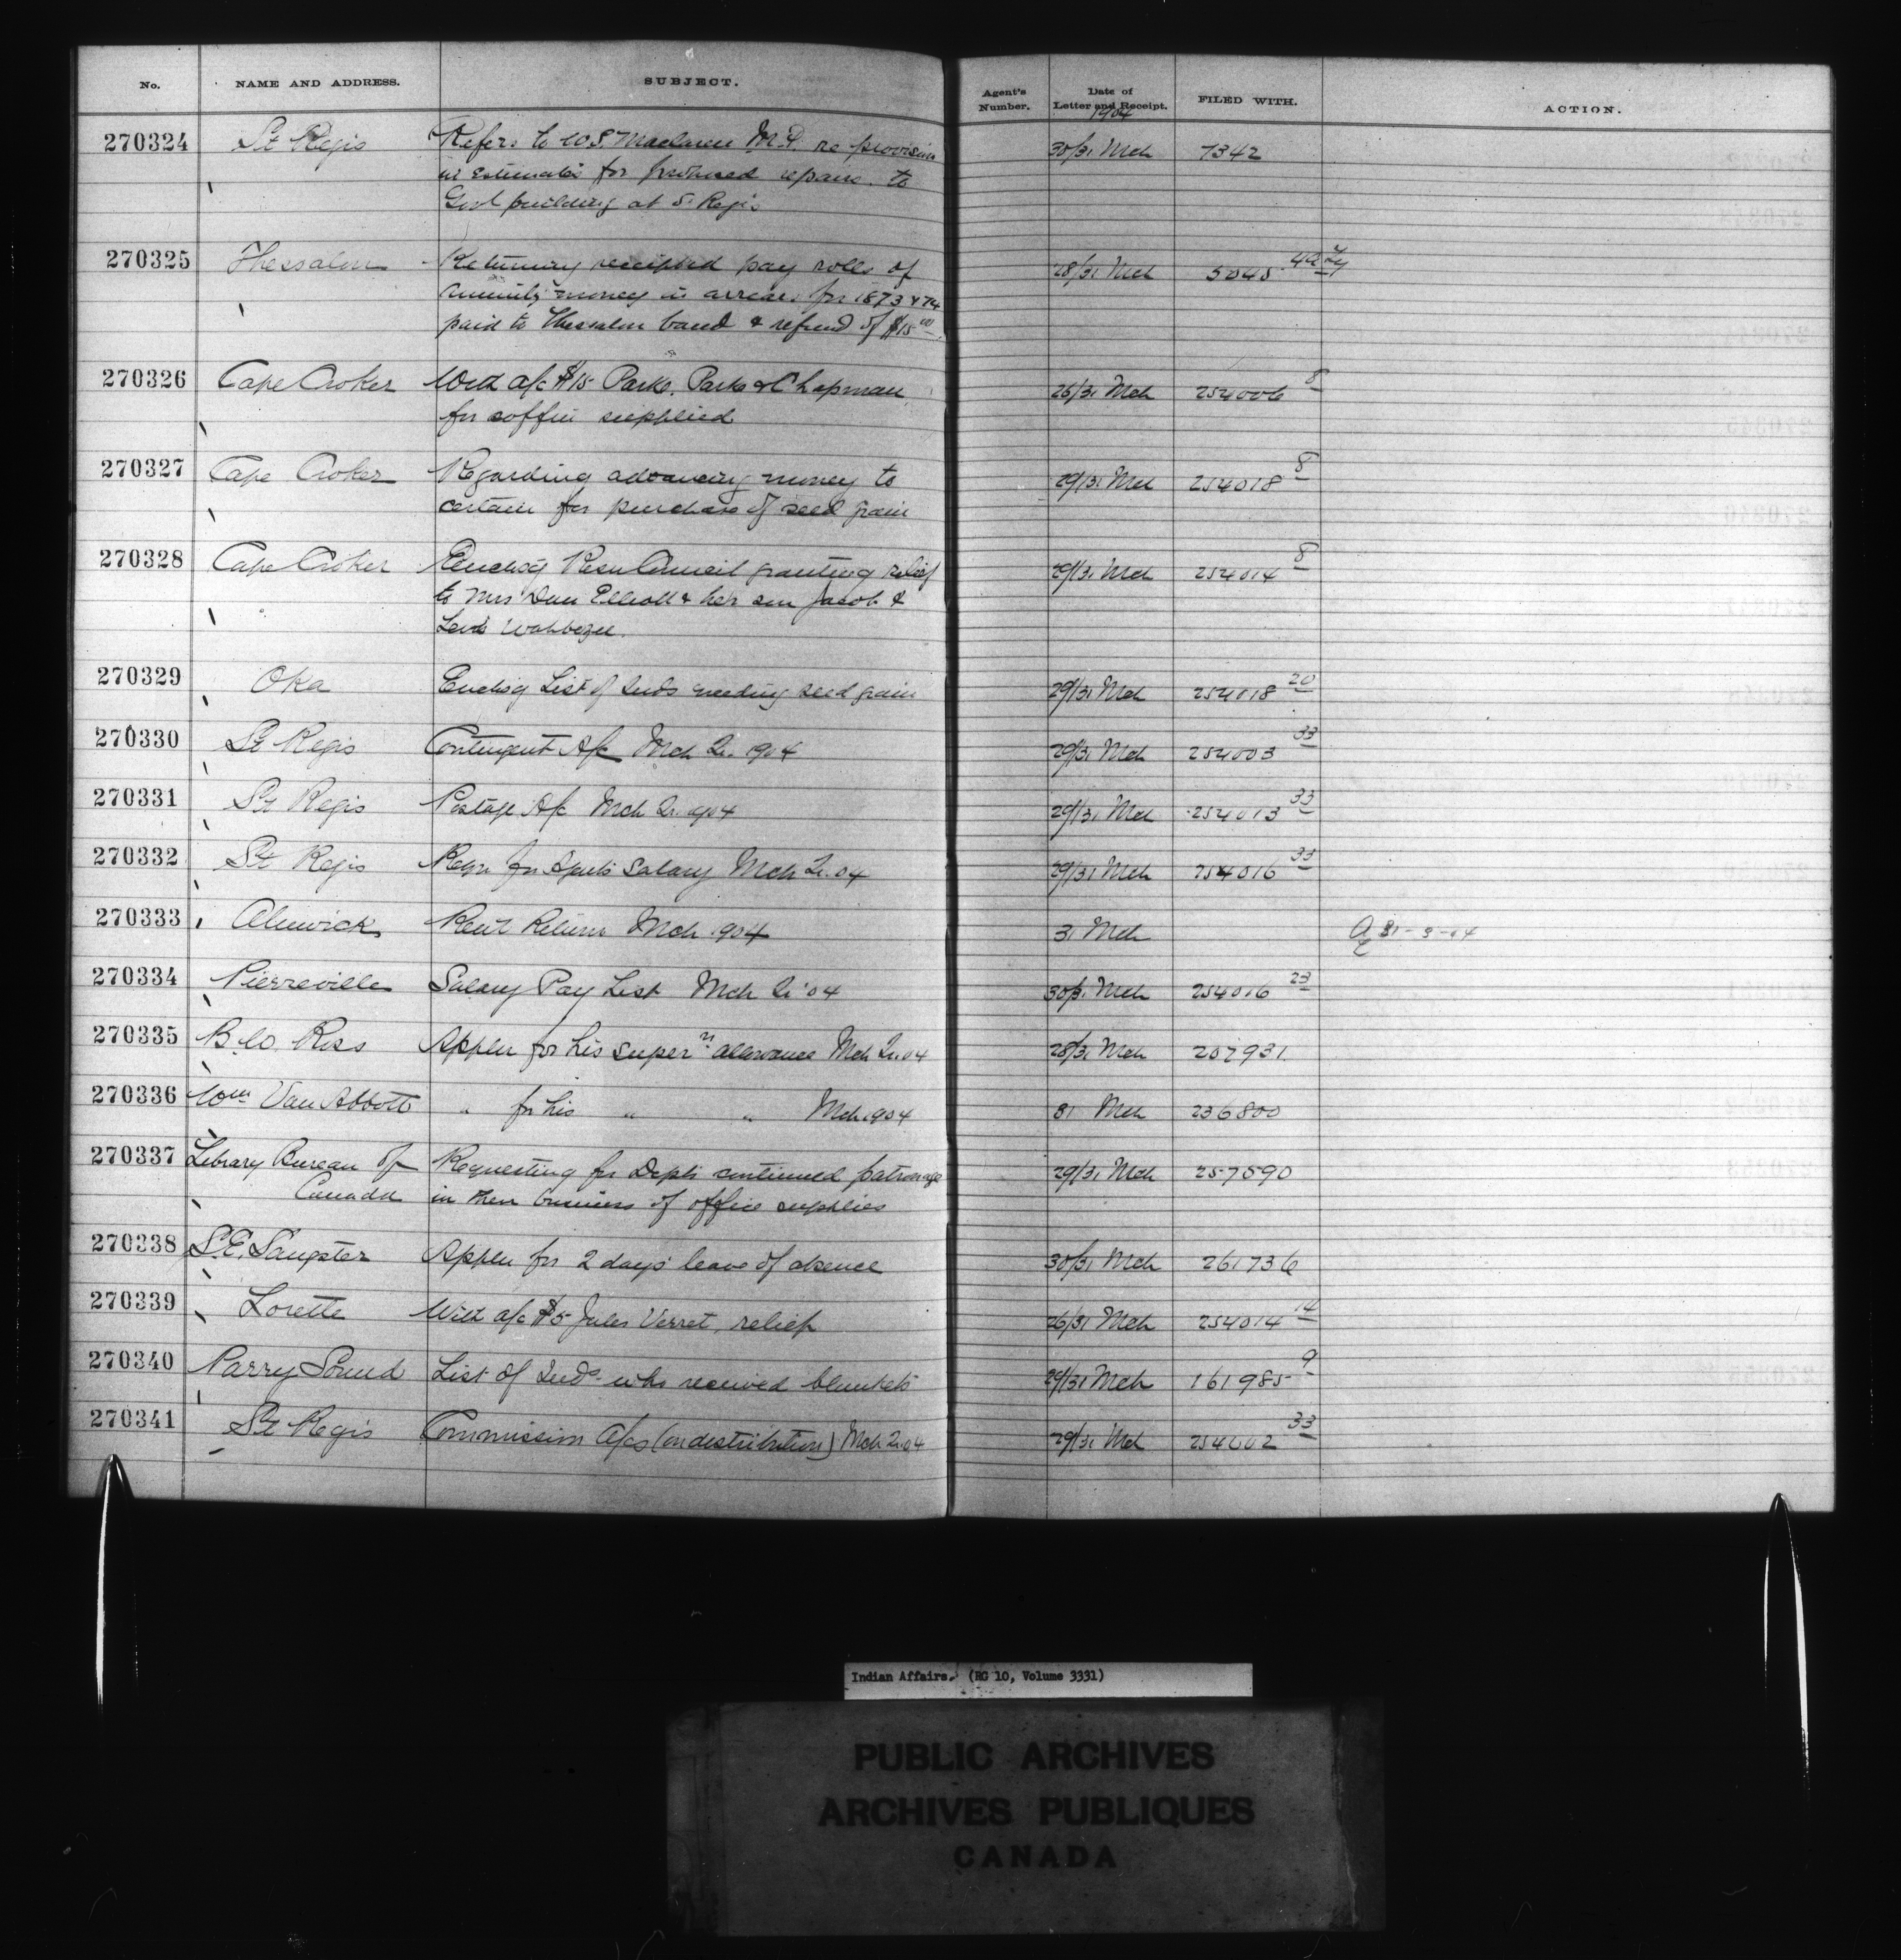 No. NAME AND ADDRESS. SUBJECT. Agent's Number. Date of Letter and Receipt. FILED WITH. ACTION.
1904
270324 St Regis Refers to W.S. Maclaren M.P. re provision 30/31 Mch 7342
in Estimates for proposed repairs to
Govt building at St Regis
270325 Thessalon Returning receipted pay rolls of 28/31 Mch 5045
annuity money in arrears for 1873 & 74
paid to Thessalon band & refund of $15 00
270326 Cape Croker With a/c $15 Parke, Parke & Chapman 26/31 Mch 254006 8
for coffin supplied
270327 Cape Croker Regarding advancing money to 29/31 Mch 254018 8
certain for purchase of seed grain
270328 Cape Croker Enclosg Resn Council granting relief 29/31 Mch 254014 8
to Mrs Dan Elliott & her son Jacob &
Levi Wahbezee.
270329 Oka Enclosg List of Inds needing seed grain 29/31 Mch 254018 20
270330 St Regis Contingent A/c Mch Qr. 1904 29/31 Mch 254003 33
270331 St Regis Postage A/c Mch Qr. 1904 29/31 Mch 254013 33
270332 St Regis Reqn for Agents Salary Mch Qr. 04 29/31 Mch 254016 33
270333 Alnwick Rent Return Mch 1904 31 Mch 31-3-04
270334 Pierreville Salary Pay List Mch Qr '04 30/31 Mch 254016 23
270335 B.W. Ross Appln for his supern allowance Mch Qr. 04 28/31 Mch 207931
270336 Wm Van Abbott " for his " " Mch 1904 31 Mch 236800
270337 Library Bureau of Requesting for Depts continued patronage 29/31 Mch 257590
Canada in their business of office supplies
270338 S.E. Sangster Appln for 2 days' leave of absence 30/31 Mch 261736
270339 Lorette With a/c $5 Jules Verret, relief 26/31 Mch 254014 14
270340 Parry Sound List of Inds who received blankets 29/31 Mch 161985 9
270341 St Regis Commission A/cs (on distribution) Mch Qr. 04 29/31 Mch 254002 33
Indian Affairs. (RG 10, Volume 3331)
PUBLIC ARCHIVES
ARCHIVES PUBLIQUES
CANADA